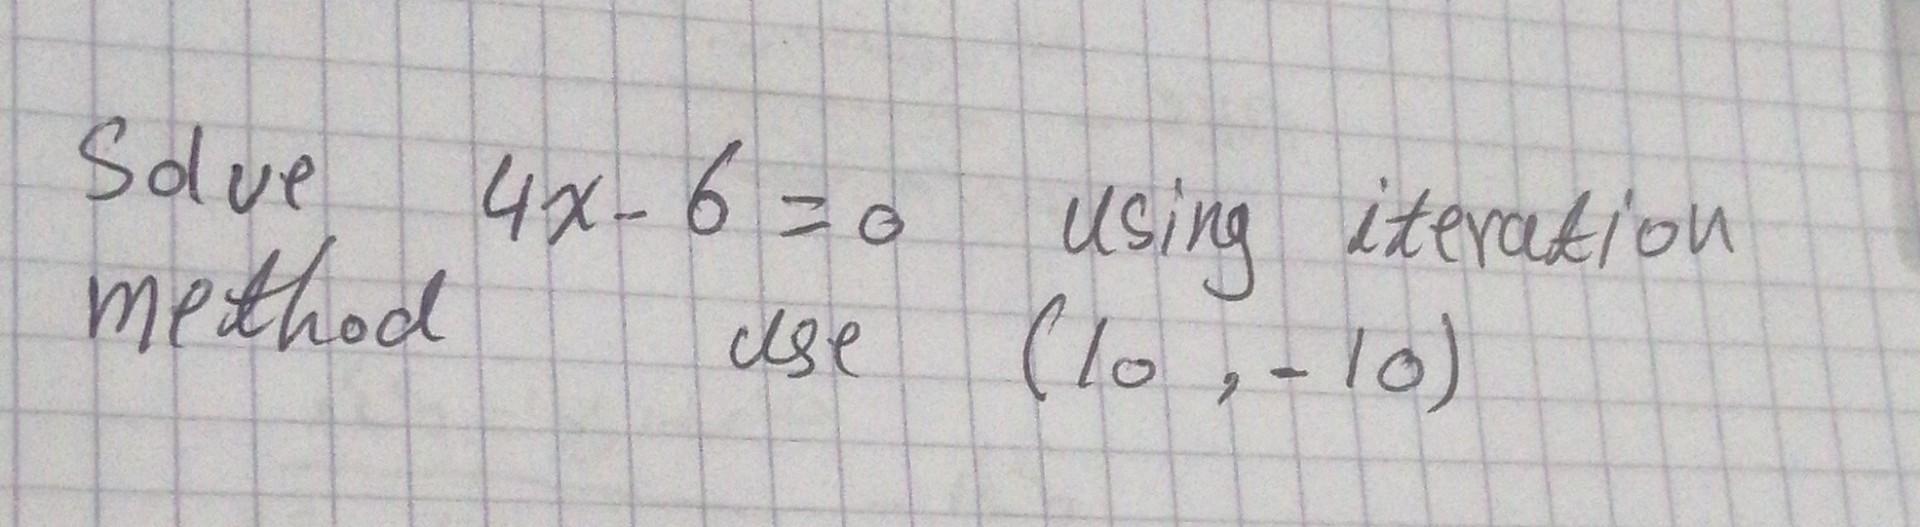 Solve 4x - 6 = 0 using iteration
method use (10, -10)